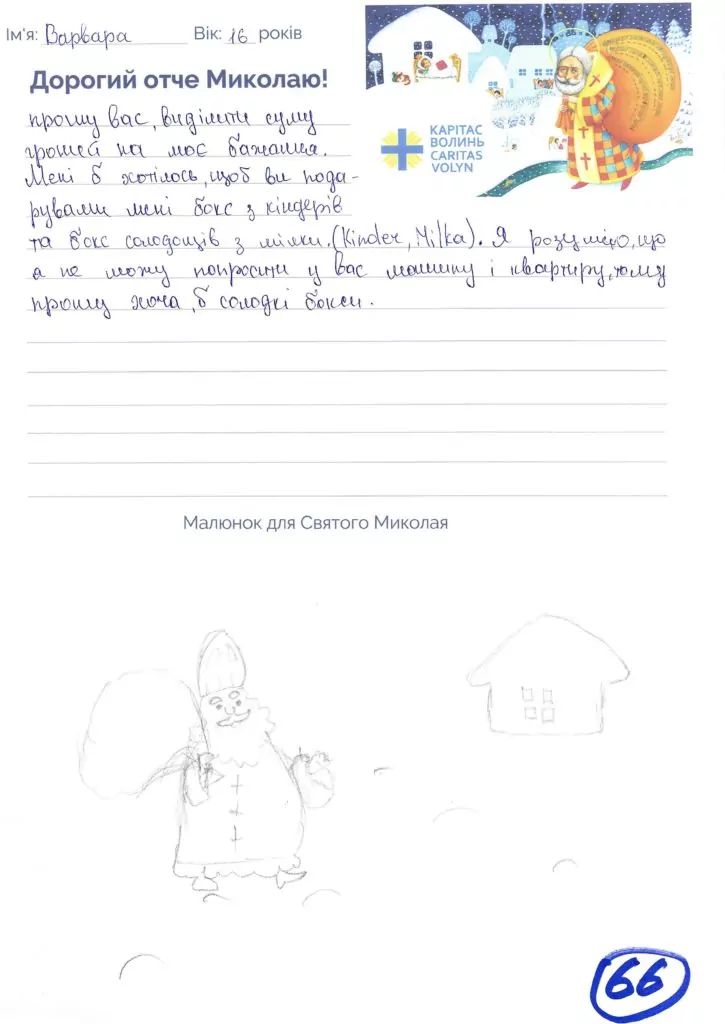 Ім'я: Варвара Вік: 16 років
КАРІТАС
ВОЛИНЬ
CARITAS
VOLYN
Дорогий отче Миколаю!
прошу вас, виділити суму
грошей на моє бажання.
Мені б хотілось, щоб ви пода-
рували мені бокс з кіндерів
та бокс солодощів з мілки. (Kinder, Milka). Я розумію, що
а не можу попросити у вас машину і квартиру, тому
прошу хоча, б солодкі бокси.
Малюнок для Святого Миколая
66